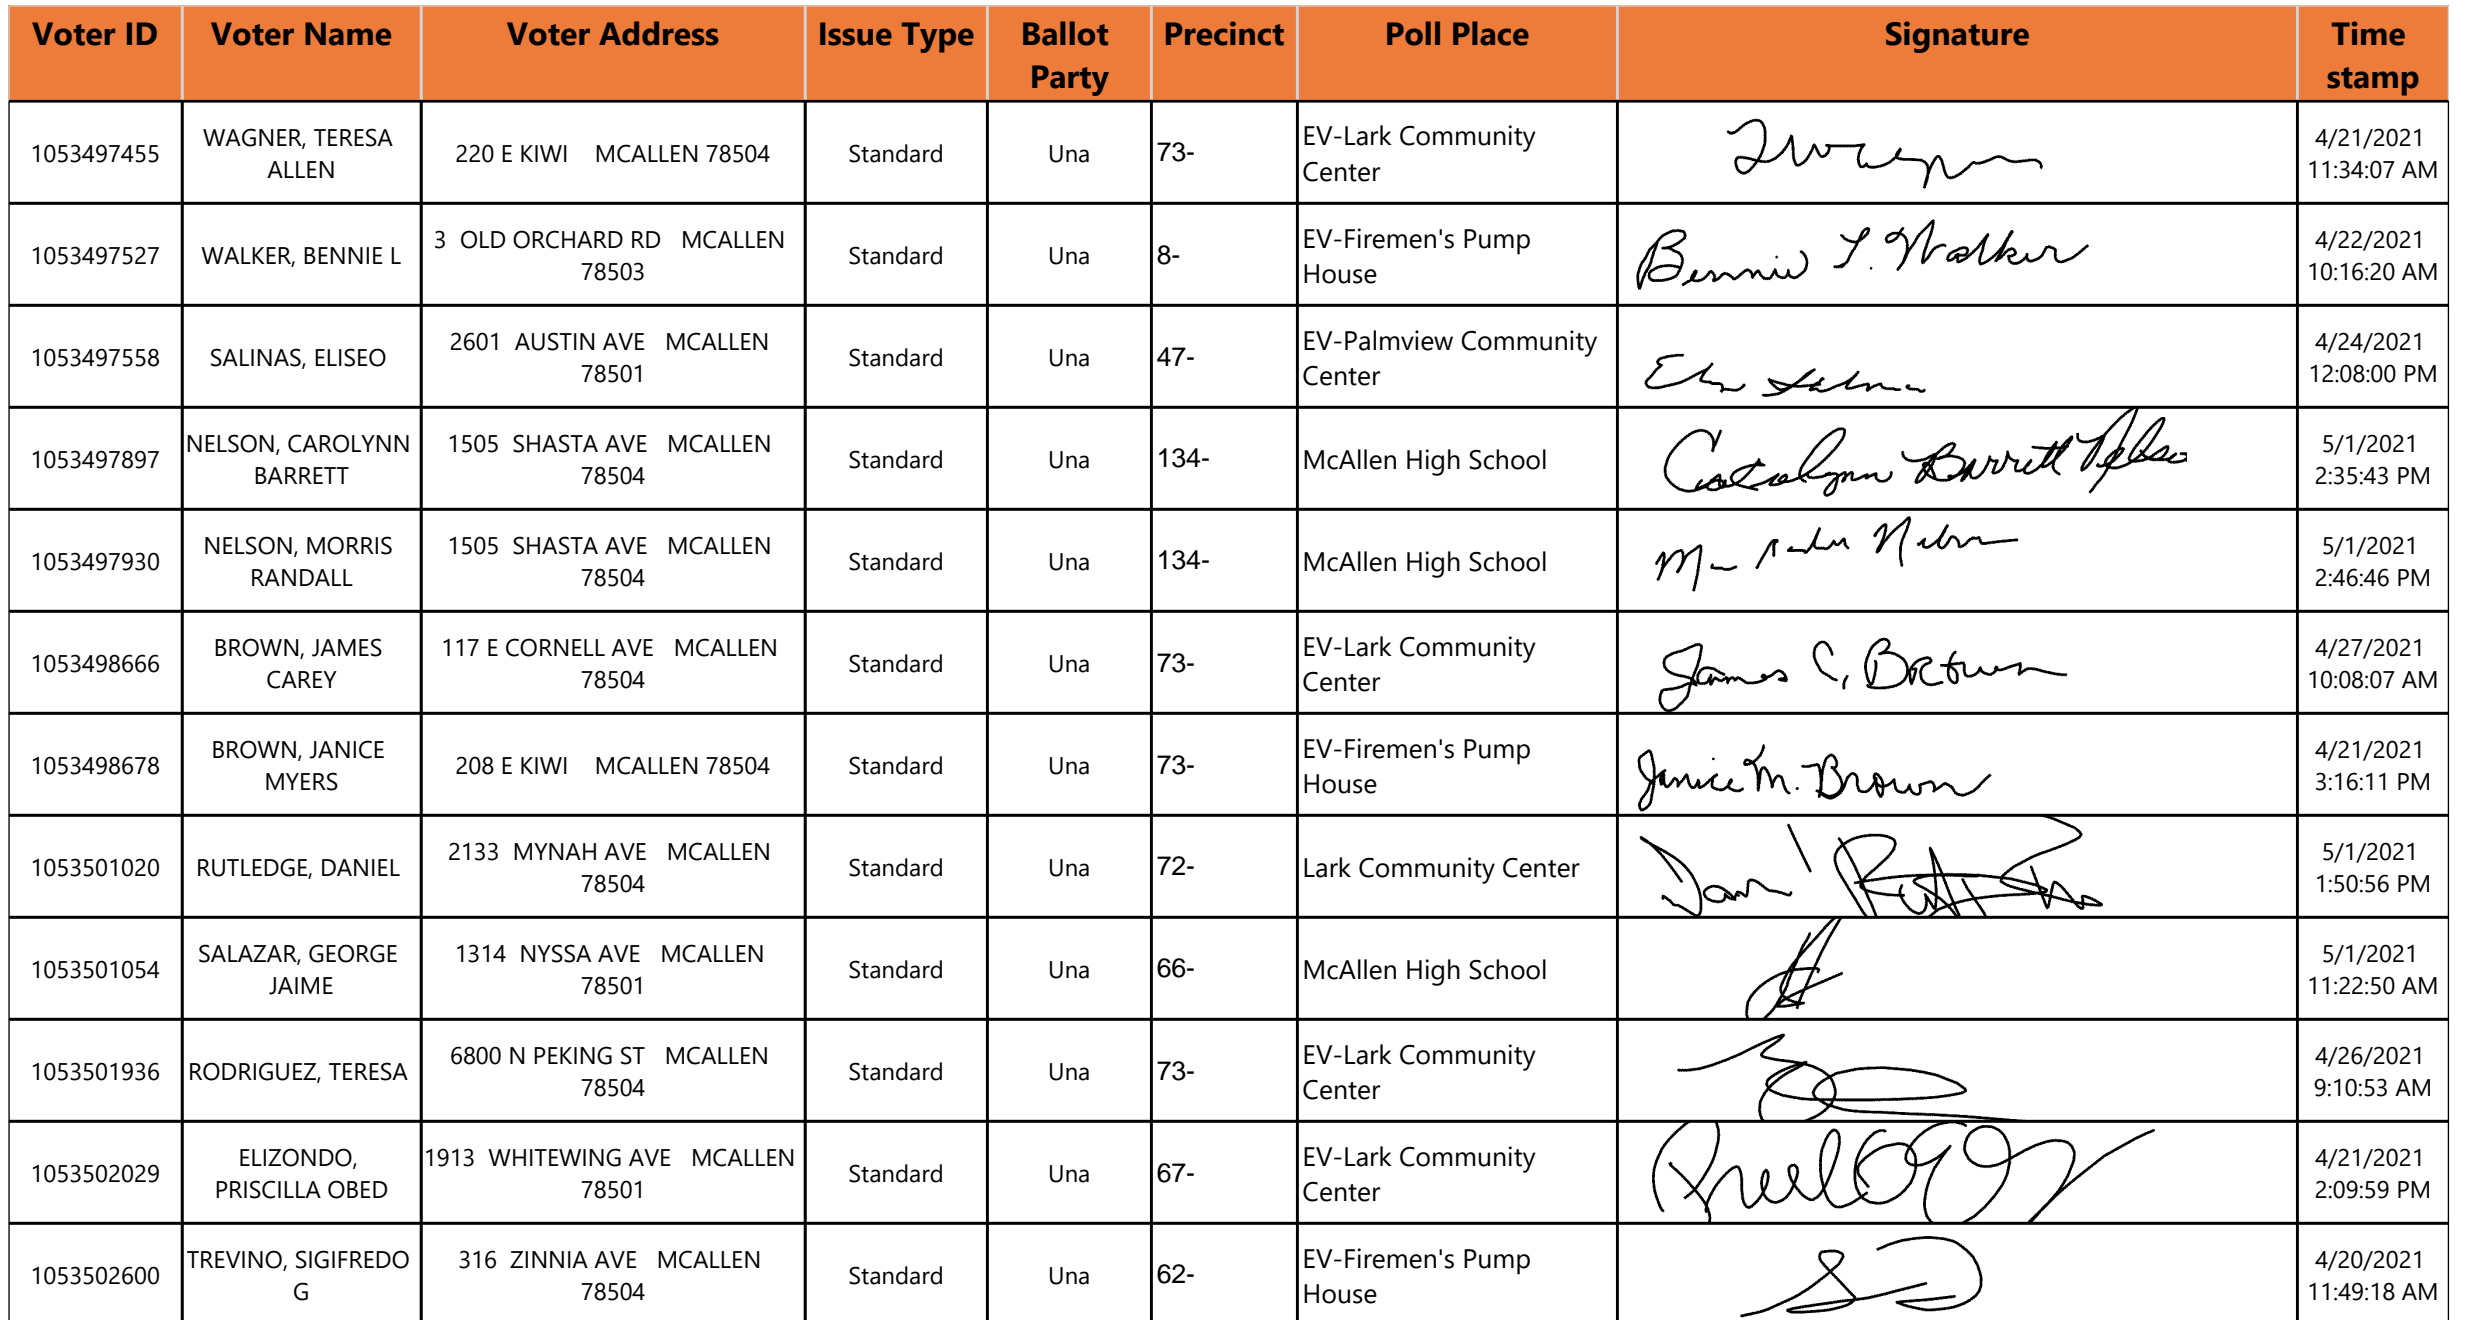 Voter ID Voter Name Voter Address Issue Type Ballot Party Precinct Poll Place Signature Time stamp
1053497455 WAGNER, TERESA ALLEN 220 E KIWI MCALLEN 78504 Standard Una 73- EV-Lark Community Center 4/21/2021 11:34:07 AM
1053497527 WALKER, BENNIE L 3 OLD ORCHARD RD MCALLEN 78503 Standard Una 8- EV-Firemen's Pump House Bennie L. Walker 4/22/2021 10:16:20 AM
1053497558 SALINAS, ELISEO 2601 AUSTIN AVE MCALLEN 78501 Standard Una 47- EV-Palmview Community Center 4/24/2021 12:08:00 PM
1053497897 NELSON, CAROLYNN BARRETT 1505 SHASTA AVE MCALLEN 78504 Standard Una 134- McAllen High School Carolynn Barrett Nelso 5/1/2021 2:35:43 PM
1053497930 NELSON, MORRIS RANDALL 1505 SHASTA AVE MCALLEN 78504 Standard Una 134- McAllen High School 5/1/2021 2:46:46 PM
1053498666 BROWN, JAMES CAREY 117 E CORNELL AVE MCALLEN 78504 Standard Una 73- EV-Lark Community Center James C. Brown 4/27/2021 10:08:07 AM
1053498678 BROWN, JANICE MYERS 208 E KIWI MCALLEN 78504 Standard Una 73- EV-Firemen's Pump House Janice M. Brown 4/21/2021 3:16:11 PM
1053501020 RUTLEDGE, DANIEL 2133 MYNAH AVE MCALLEN 78504 Standard Una 72- Lark Community Center 5/1/2021 1:50:56 PM
1053501054 SALAZAR, GEORGE JAIME 1314 NYSSA AVE MCALLEN 78501 Standard Una 66- McAllen High School 5/1/2021 11:22:50 AM
1053501936 RODRIGUEZ, TERESA 6800 N PEKING ST MCALLEN 78504 Standard Una 73- EV-Lark Community Center 4/26/2021 9:10:53 AM
1053502029 ELIZONDO, PRISCILLA OBED 1913 WHITEWING AVE MCALLEN 78501 Standard Una 67- EV-Lark Community Center 4/21/2021 2:09:59 PM
1053502600 TREVINO, SIGIFREDO G 316 ZINNIA AVE MCALLEN 78504 Standard Una 62- EV-Firemen's Pump House 4/20/2021 11:49:18 AM